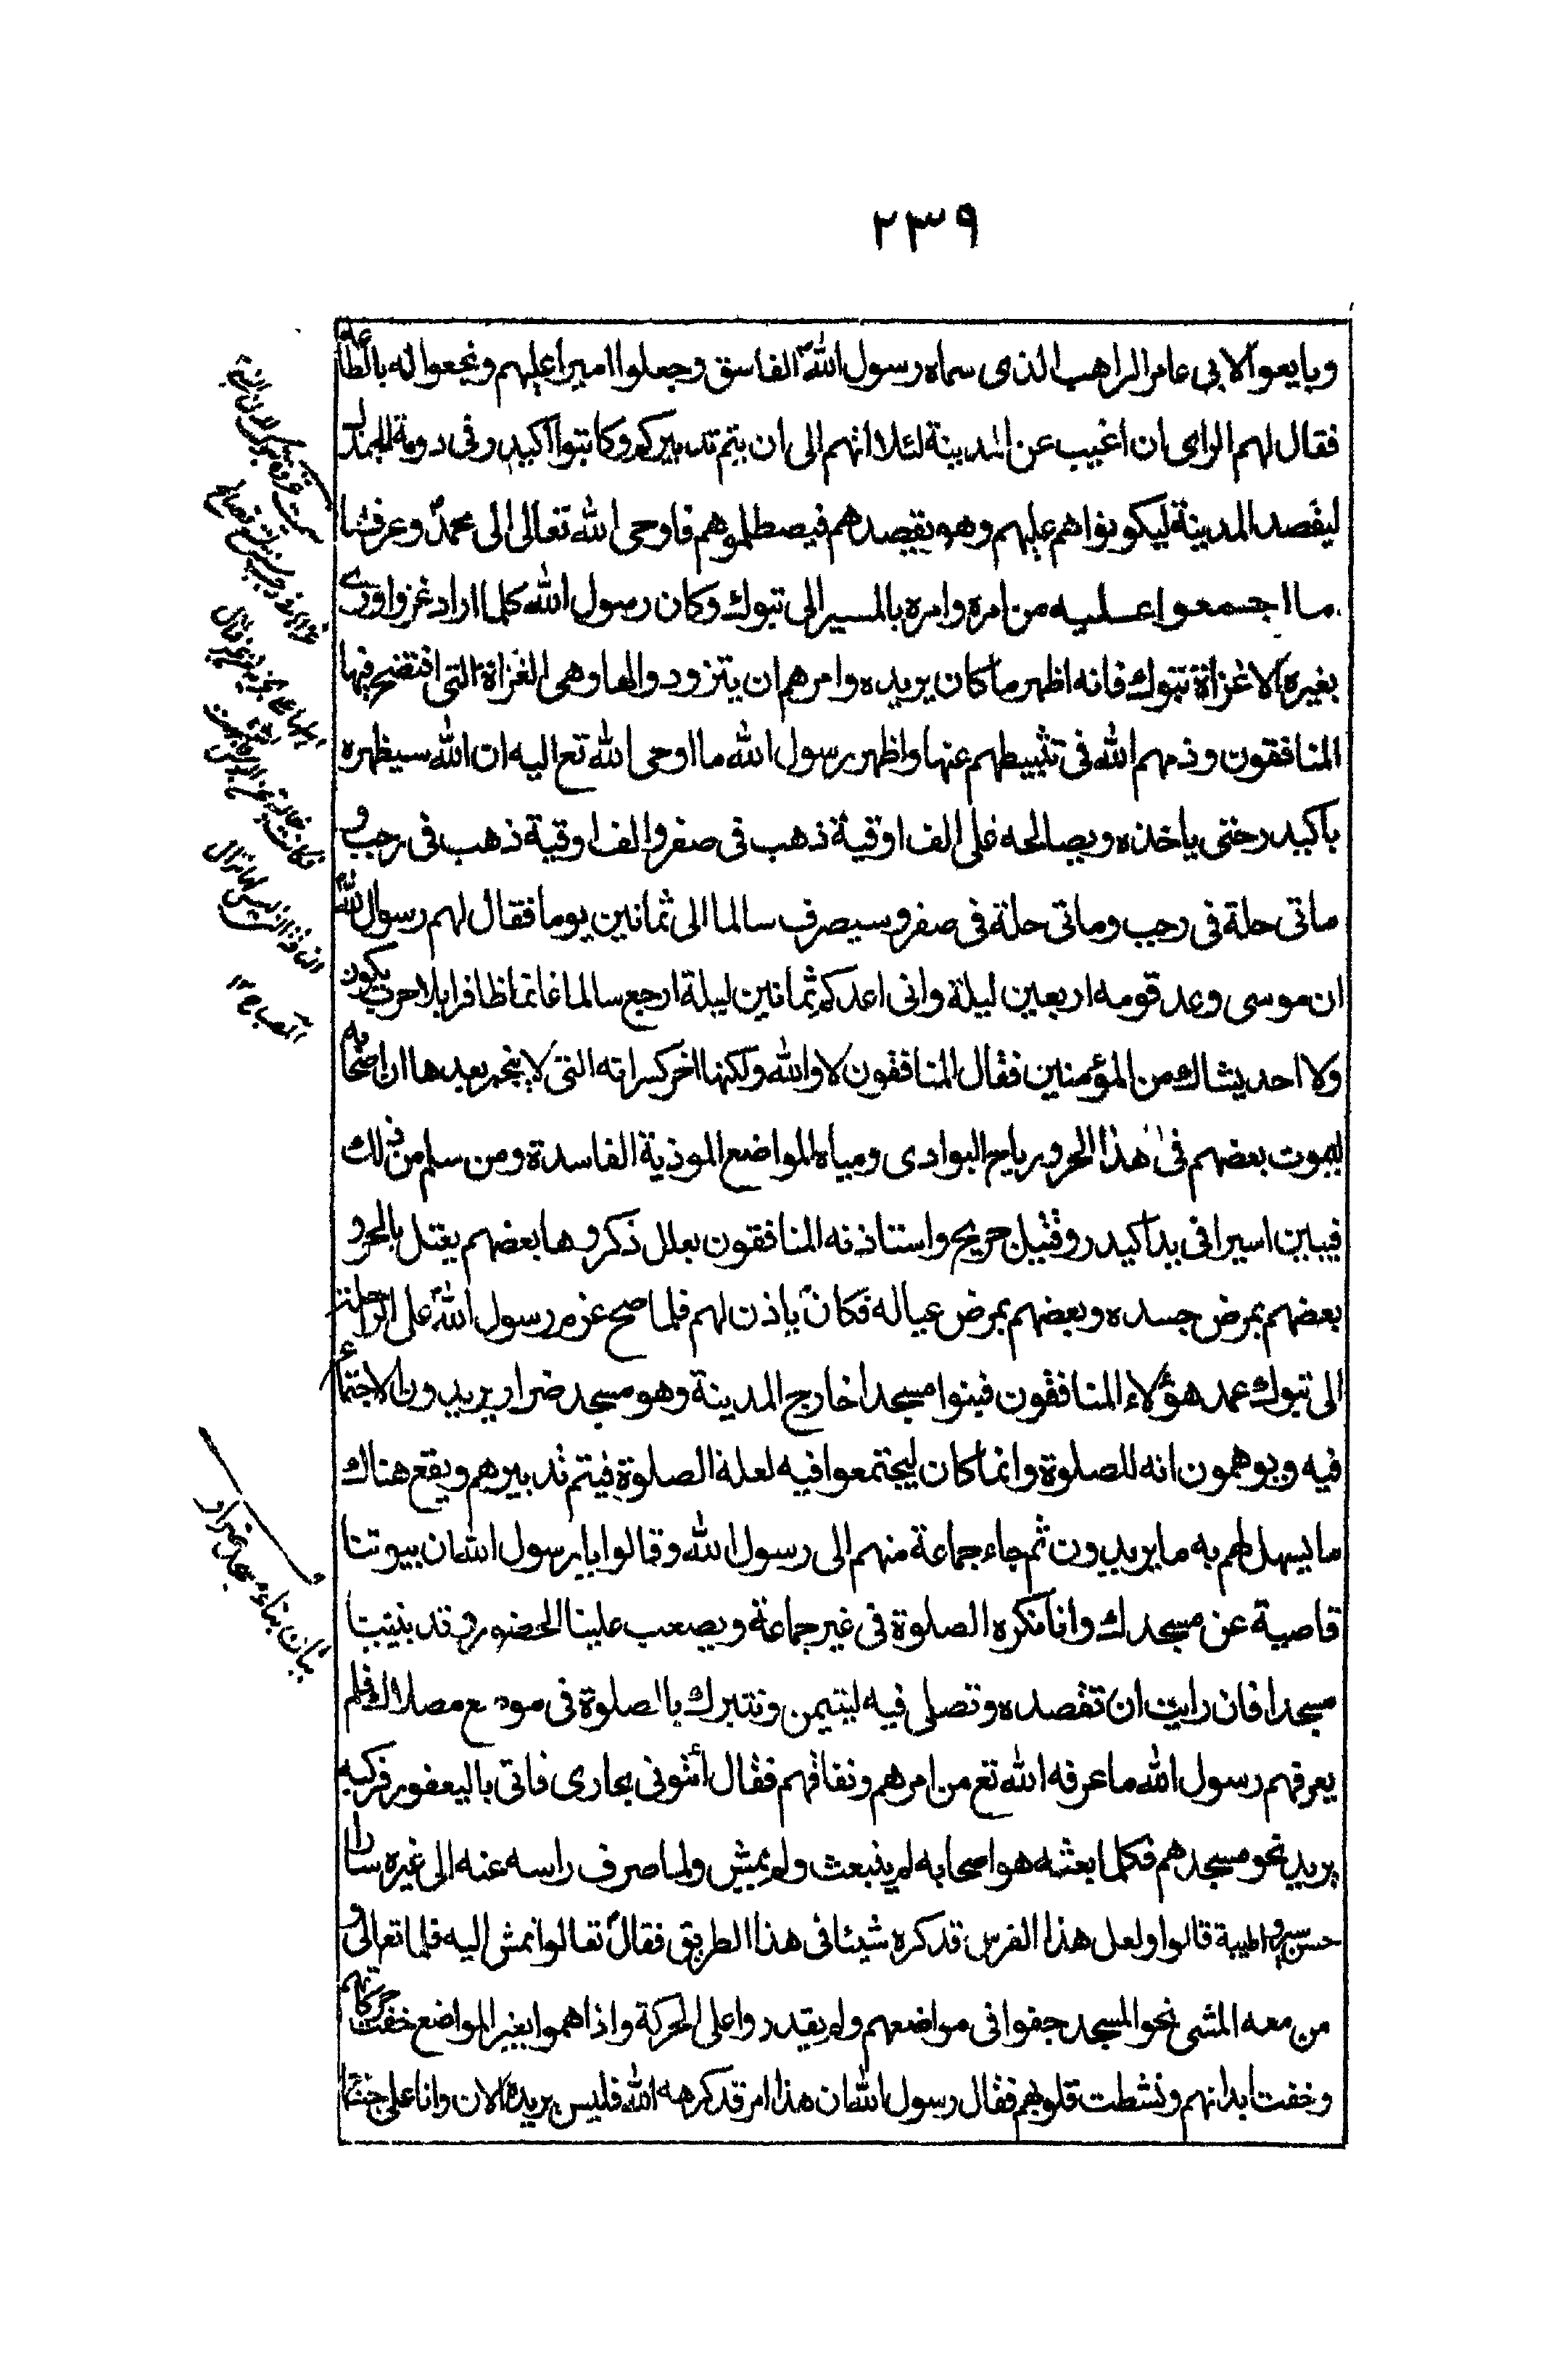 ٢٣٩
وبايعوا لابي عامر الراهب الذى سماه رسول اللهؐ الفاسق وجعلوا اميرا عليهم ونجعوا له بالطاعة
فقال لهم الراى ان اغيب عن المدينة لئلا اتهم الى ان يتم تدبيركم وكاتبوا اكيدر فى دومة الجندل
ليقصد المدينة ليكونوا هم عليهم وهو يقصدهم فيصطلموهم فاوحى الله تعالى الى محمدؐ وعرفه
ما اجمعوا عليه من امره وامره بالمسير الى تبوك وكان رسول الله كلما اراد غزوا ورى
بغيره الا غزاة تبوك فانه اظهر ما كان يريده وامرهم ان يتزودوا لها وهى الغزاة التى افتضح فيها
المنافقون وذمهم الله فى تثبيطهم عنها واظهر رسول الله ما اوحى الله تع اليه ان الله سيظهره
باكيدر حتى ياخذه ويصالحه على الف اوقية ذهب فى صفر والف اوقية ذهب فى رجب و
ماتى حلة فى رجب وماتى حلة فى صفر وسيصرف سالما الى ثمانين يوما فقال لهم رسول اللهؐ
ان موسى وعد قومه اربعين ليلة وانى اعدكم ثمانين ليلة ارجع سالما غانما ظافرا بلا حرب يكون
ولا احد يشاك من المؤمنين فقال المنافقون لا والله ولكنها اخر كسراته التى لا ينجبر بعدها ان اصحابه
ليموت بعضهم فى هذا الحر ورياح البوادى ومياه المواضع الموذية الفاسدة ومن سلم من ذلك
فبين اسير فى يد اكيدر وقتيل وجريح واستاذنه المنافقون بعلل ذكروها بعضهم يعتل بالحر و
بعضهم بمرض جسده وبعضهم بمرض عياله فكانؐ ياذن لهم فلما صح عزم رسول اللهؐ على الراحلة
الى تبوك عمد هؤلاء المنافقون فبنوا مسجدا خارج المدينة وهو مسجد ضرار يريدون الاجتماع
فيه ويوهمون انه للصلوة وانما كان ليجتمعوا فيه لعلة الصلوة فيتم تدبيرهم ويقع هناك
ما يسهل لهم به ما يريدون ثم جاء جماعة منهم الى رسول الله وقالوا يا رسول الله ان بيوتنا
قاصية عن مسجدك وانا نكره الصلوة فى غير جماعة ويصعب علينا الحضور وقد بنينا
مسجدا فان رايت ان تقصده وتصلى فيه لنتيمن ونتبرك بالصلوة فى موضع مصلاك فلم
يعرفهم رسول الله ما عرفه الله تع من امرهم ونفاقهم فقال أئتونى بحارى فاتى باليعفور فركبه
يريد نحو مسجدهم فكلما بعثه هو واصحابه لم ينبعث ولم يمش ولما صرف راسه عنه الى غيره سار
حسن سير واطيبه قالوا ولعل هذا الفرس قد كره شيئا فى هذا الطريق فقالؐ تعالوا نمش اليه فلما تعاطى و
من معه المشى نحو المسجد جفوا فى مواضعهم ولم يقدروا على الحركة واذا هموا بغير المواضع خفت حركاتهم
وخفت ابدانهم ونشطت قلوبهم فقال رسول الله ان هذا امر قد كرهه الله فليس يريده الان وانا على جناح
بيان بناء مسجد ضرار